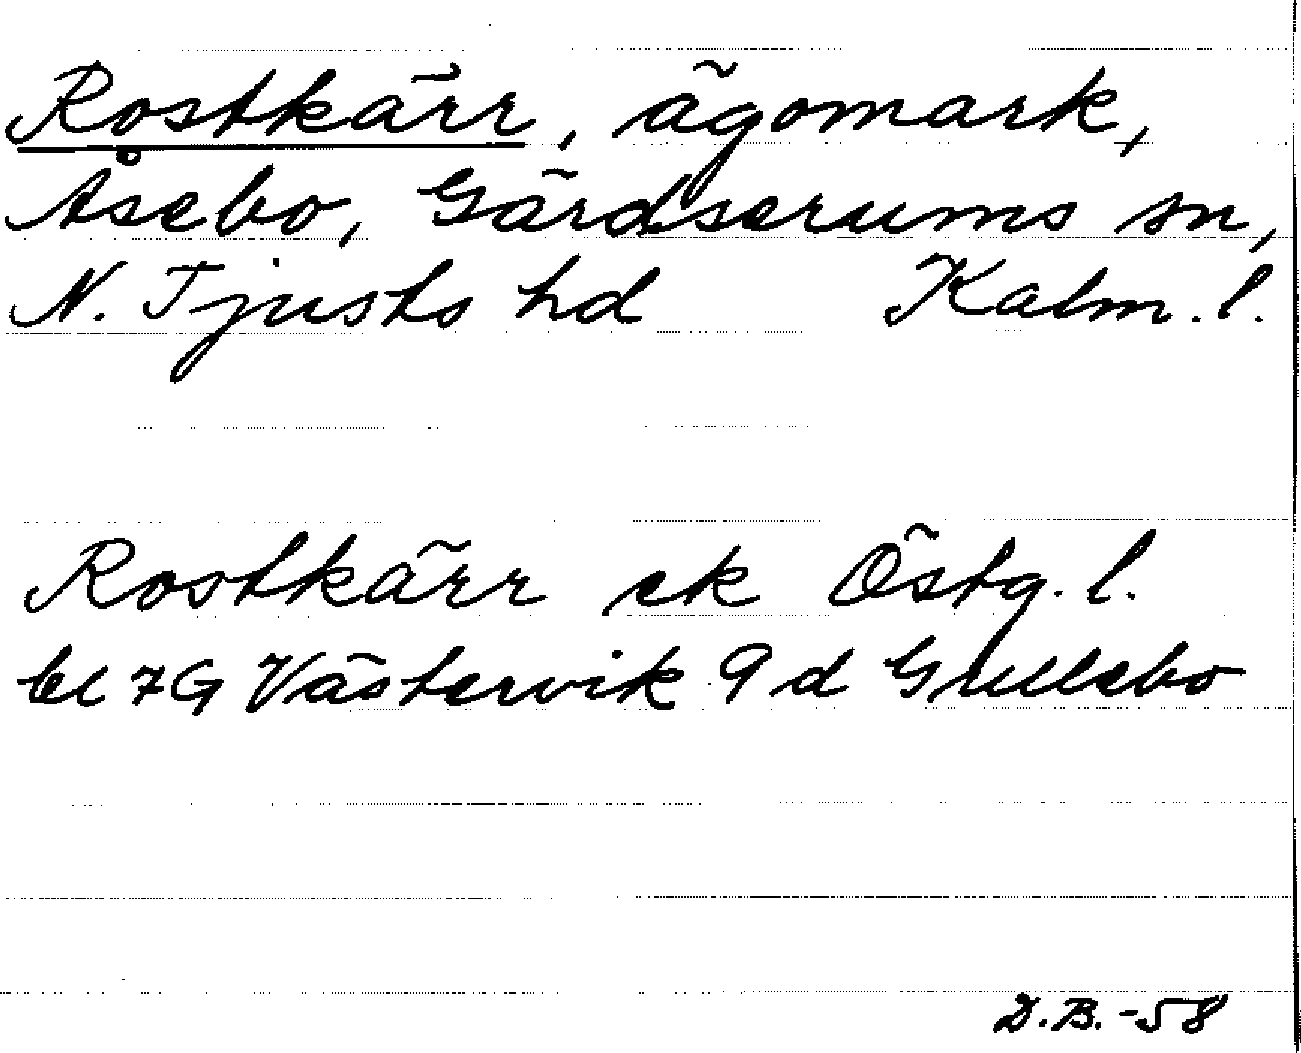 Rostkärr, ägomark,
Åsebo, Gärdserums sn,
N. Tjusts hd Kalm. l.
Rostkärr ek Östg. l.
bl 7G Västervik 9 d Gullebo
D.B. -58